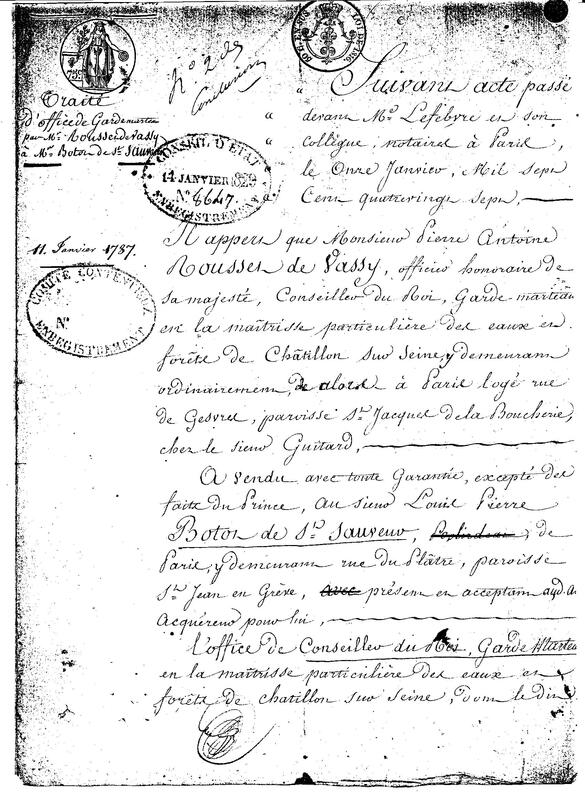 75c
DOM. ENR. ET TIMB.
N.° 2 des
Conclusions
Traité
d'office de Garde marteau
par Mr. Rousset de Vassy
à Mr. Boton de St. Sauveur
CONSEIL D'ETAT
14 JANVIER 1829
N.° 8647.
ENREGISTREMENT
11. Janvier 1787.
COMITE CONTENTIEUX
N.°
ENREGISTREMENT
" Suivant acte passé
" devant Me. Lefebvre et son
" collègue, notaires à Paris,
le Onze Janvier, Mil sept
Cent quatrevingt sept,
Il appert que Monsieur Pierre Antoine
Rousset de Vassy, officier honoraire de
sa majesté, Conseiller du Roi, Garde marteau
en la maîtrise particulière des eaux et
forêts de Châtillon sur Seine, y demeurant
ordinairement, de alors à Paris logé rue
de Gesvres, paroisse St. Jacques de la Boucherie,
chez le sieur Guitard,
A vendu avec toute Garantie, excepté des
faits du Prince, au sieur Louis Pierre
Boton de St. Sauveur, de
Paris, y demeurant rue du Plâtre, paroisse
St. Jean en Grève, avec présent et acceptant
acquéreur pour lui,
l'office de Conseiller du Roi, Garde Marteau
en la maîtrise particulière des eaux et
forêts de chatillon sur seine, dont le dit